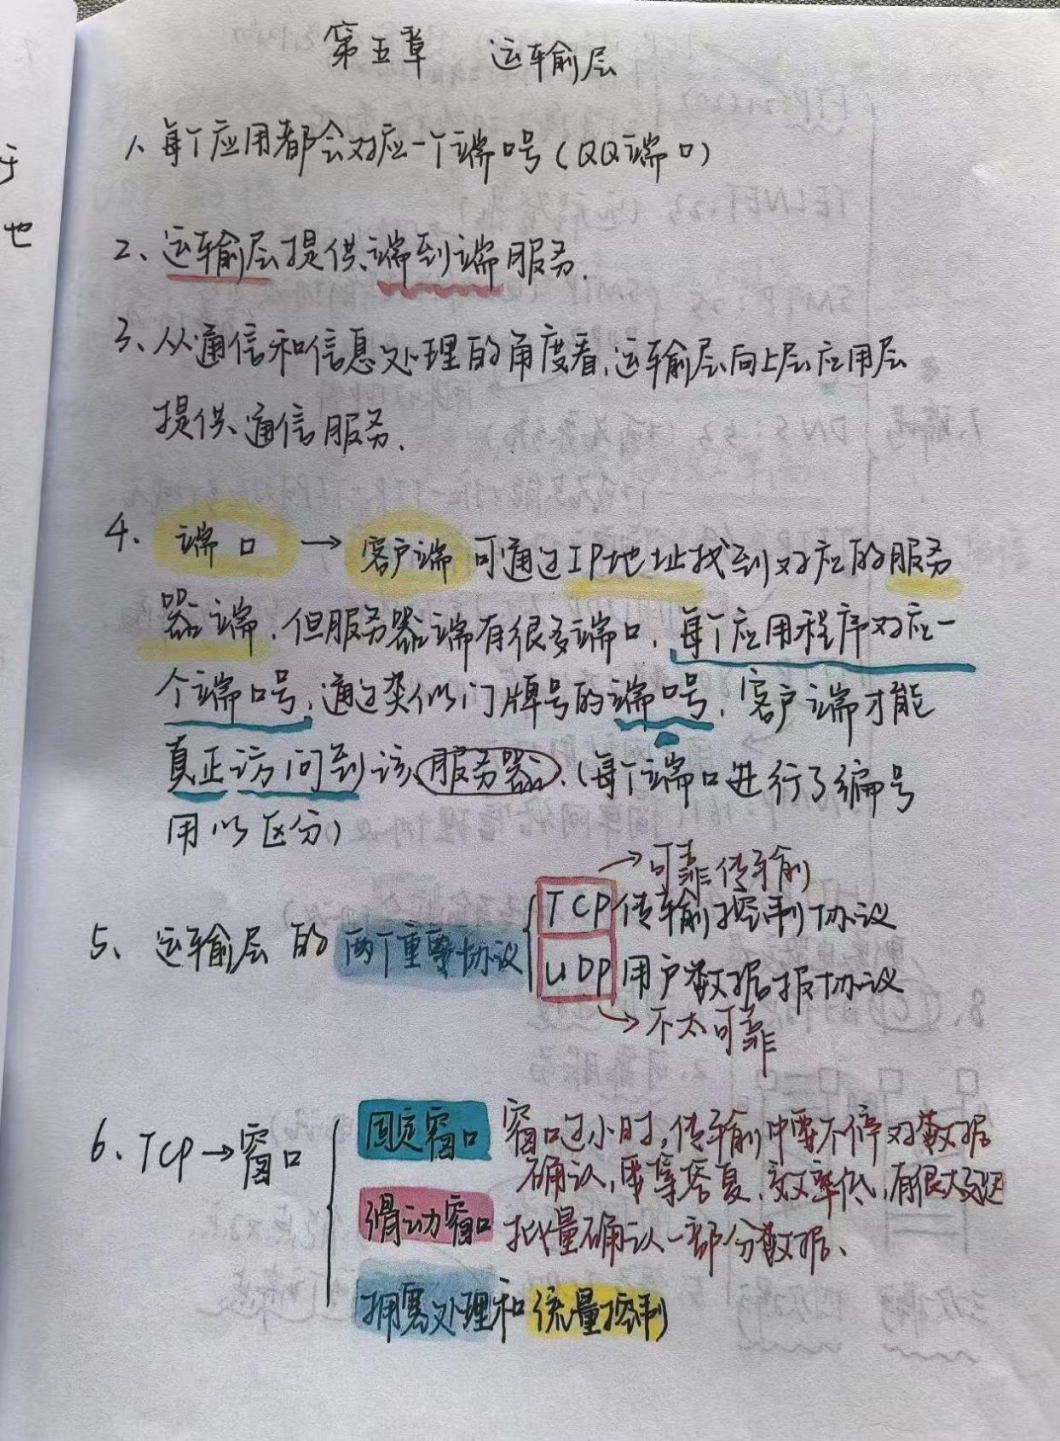 第五章 运输层
1、每个应用都会对应一个端口号(QQ端口)
2、运输层提供端到端服务.
3、从通信和信息处理的角度看,运输层向上层应用层
提供通信服务.
4、端口 → 客户端可通过IP地址找到对应的服务
器端,但服务器端有很多端口,每个应用程序对应一
个端口号,通过类似门牌号的端口号,客户端才能
真正访问到该服务器.(每个端口进行了编号
用以区分)
→可靠传输
TCP 传输控制协议
5、运输层的两个重要协议
UDP 用户数据报协议
→不太可靠
固定窗口 窗口过小时,传输中要不停对数据
6、TCP→窗口
确认,要等答复,效率低,有很大延迟
滑动窗口 批量确认一部分数据、
拥塞处理和流量控制